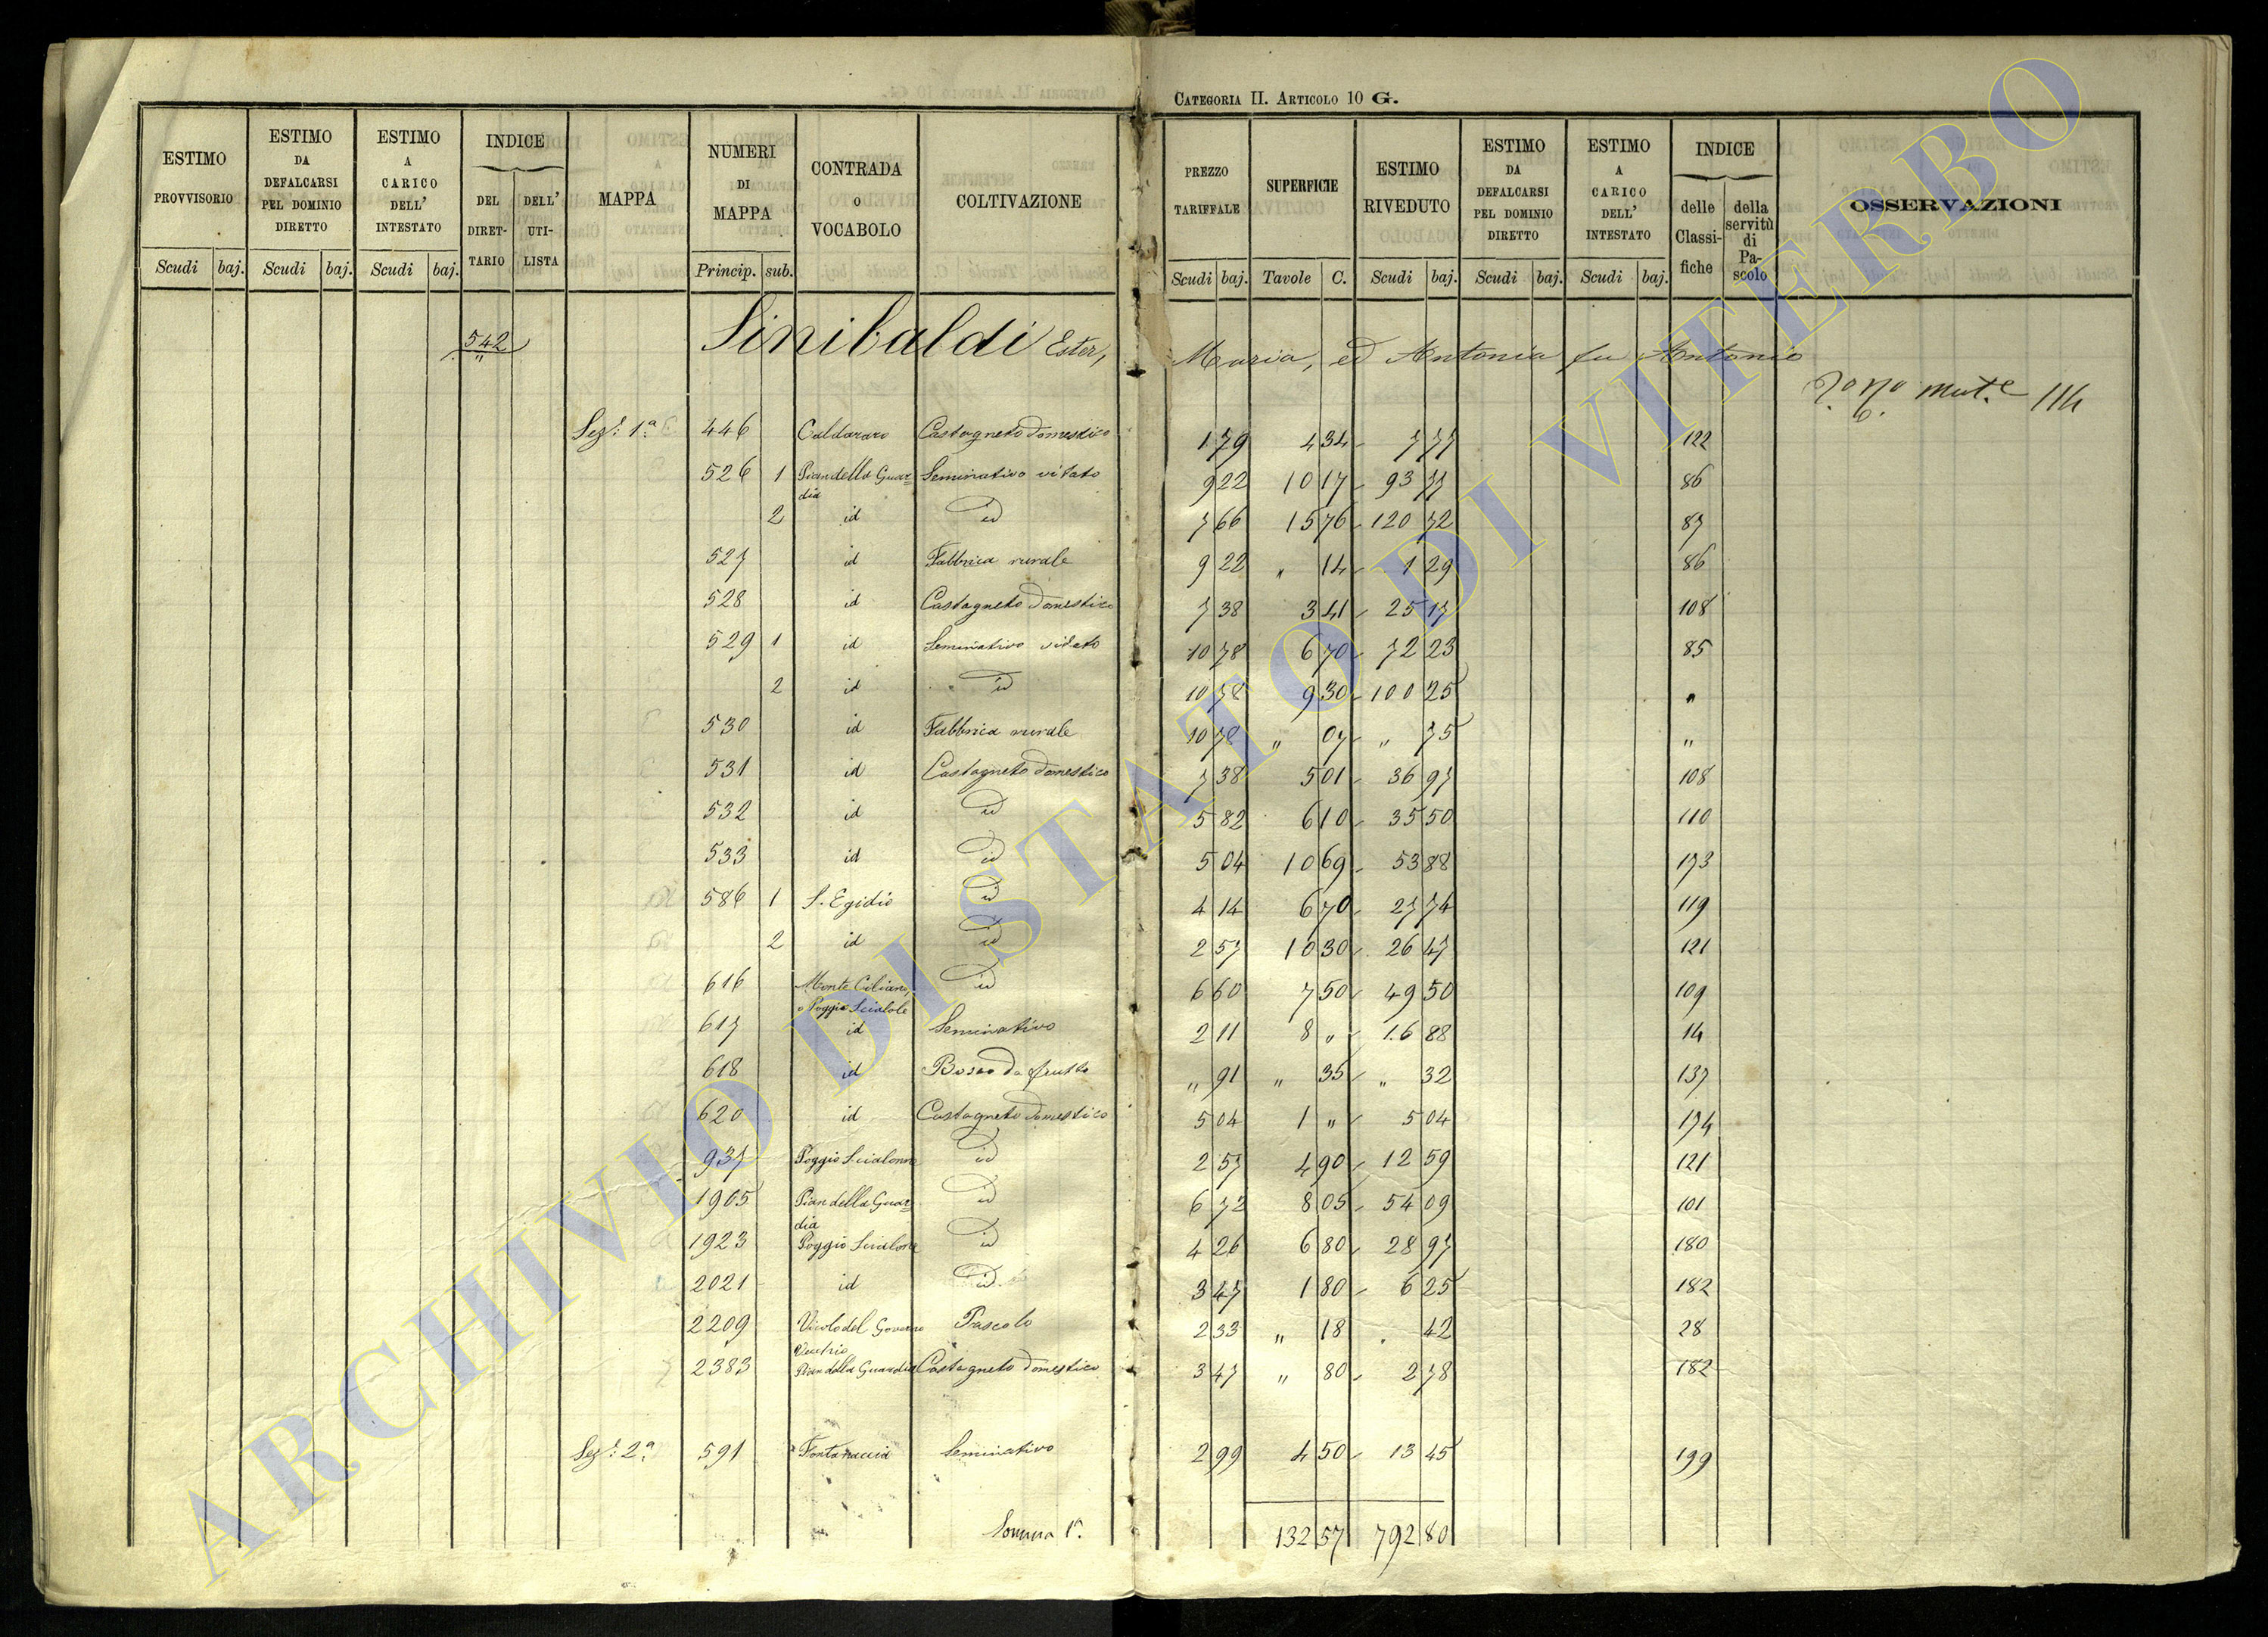 CATEGORIA II. ARTICOLO 10 G.
ESTIMO PROVVISORIO Scudi baj.
ESTIMO DA DEFALCARSI PEL DOMINIO DIRETTO Scudi baj.
ESTIMO A CARICO DELL' INTESTATO Scudi baj.
INDICE DEL DIRET-TARIO DELL' UTI-LISTA
MAPPA
NUMERI DI MAPPA Princip. sub.
CONTRADA O VOCABOLO
COLTIVAZIONE
PREZZO TARIFFALE Scudi baj.
SUPERFICIE Tavole C.
ESTIMO RIVEDUTO Scudi baj.
ESTIMO DA DEFALCARSI PEL DOMINIO DIRETTO Scudi baj.
ESTIMO A CARICO DELL' INTESTATO Scudi baj.
INDICE delle Classi-fiche della servitù di Pa-scolo
OSSERVAZIONI
542 Sinibaldi Ester, Maria, ed Antonia fu Antonio
114
Sez: 1a 446 Caldararo Castagneto domestico 1 79 4 34 7 77 122
526 1 Pian della Guar= Seminativo vitato 9 22 10 17 93 77 86
dia
2 id id 7 66 15 76 120 72 87
527 id Fabbrica rurale 9 22 " 14 1 29 86
528 id Castagneto domestico 7 38 3 41 25 17 108
529 1 id Seminativo vitato 10 78 6 70 72 23 85
2 id id 10 78 9 30 100 25 "
530 id Fabbrica rurale 10 78 " 07 " 75 "
531 id Castagneto domestico 7 38 5 01 36 97 108
532 id id 5 82 6 10 35 50 110
533 id id 5 04 10 69 53 88 173
586 1 S. Egidio id 4 14 6 70 27 74 119
2 id id 2 57 10 30 26 47 121
616 Monte Ciliano, id 6 60 7 50 49 50 109
o Poggio Scialole
617 id Seminativo 2 11 8 " 16 88 14
618 id Bosco da frutto " 91 " 35 " 32 137
620 id Castagneto domestico 5 04 1 " 5 04 174
937 Poggio Scialonne id 2 57 4 90 12 59 121
1905 Pian della Guar= id 6 72 8 05 54 09 101
dia
1923 Poggio Scialone id 4 26 6 80 28 97 180
2021 id id 3 47 1 80 6 25 182
2209 Vicolo del Governo Pascolo 2 33 " 18 . 42 28
Vecchio
2383 Pian della Guardia Castagneto domestico 3 47 " 80 2 78 182
Sez: 2a 591 Fontanaccia Seminativo 2 99 4 50 13 45 199
Somma 1a. 132 57 792 80
ARCHIVIO DI STATO DI VITERBO